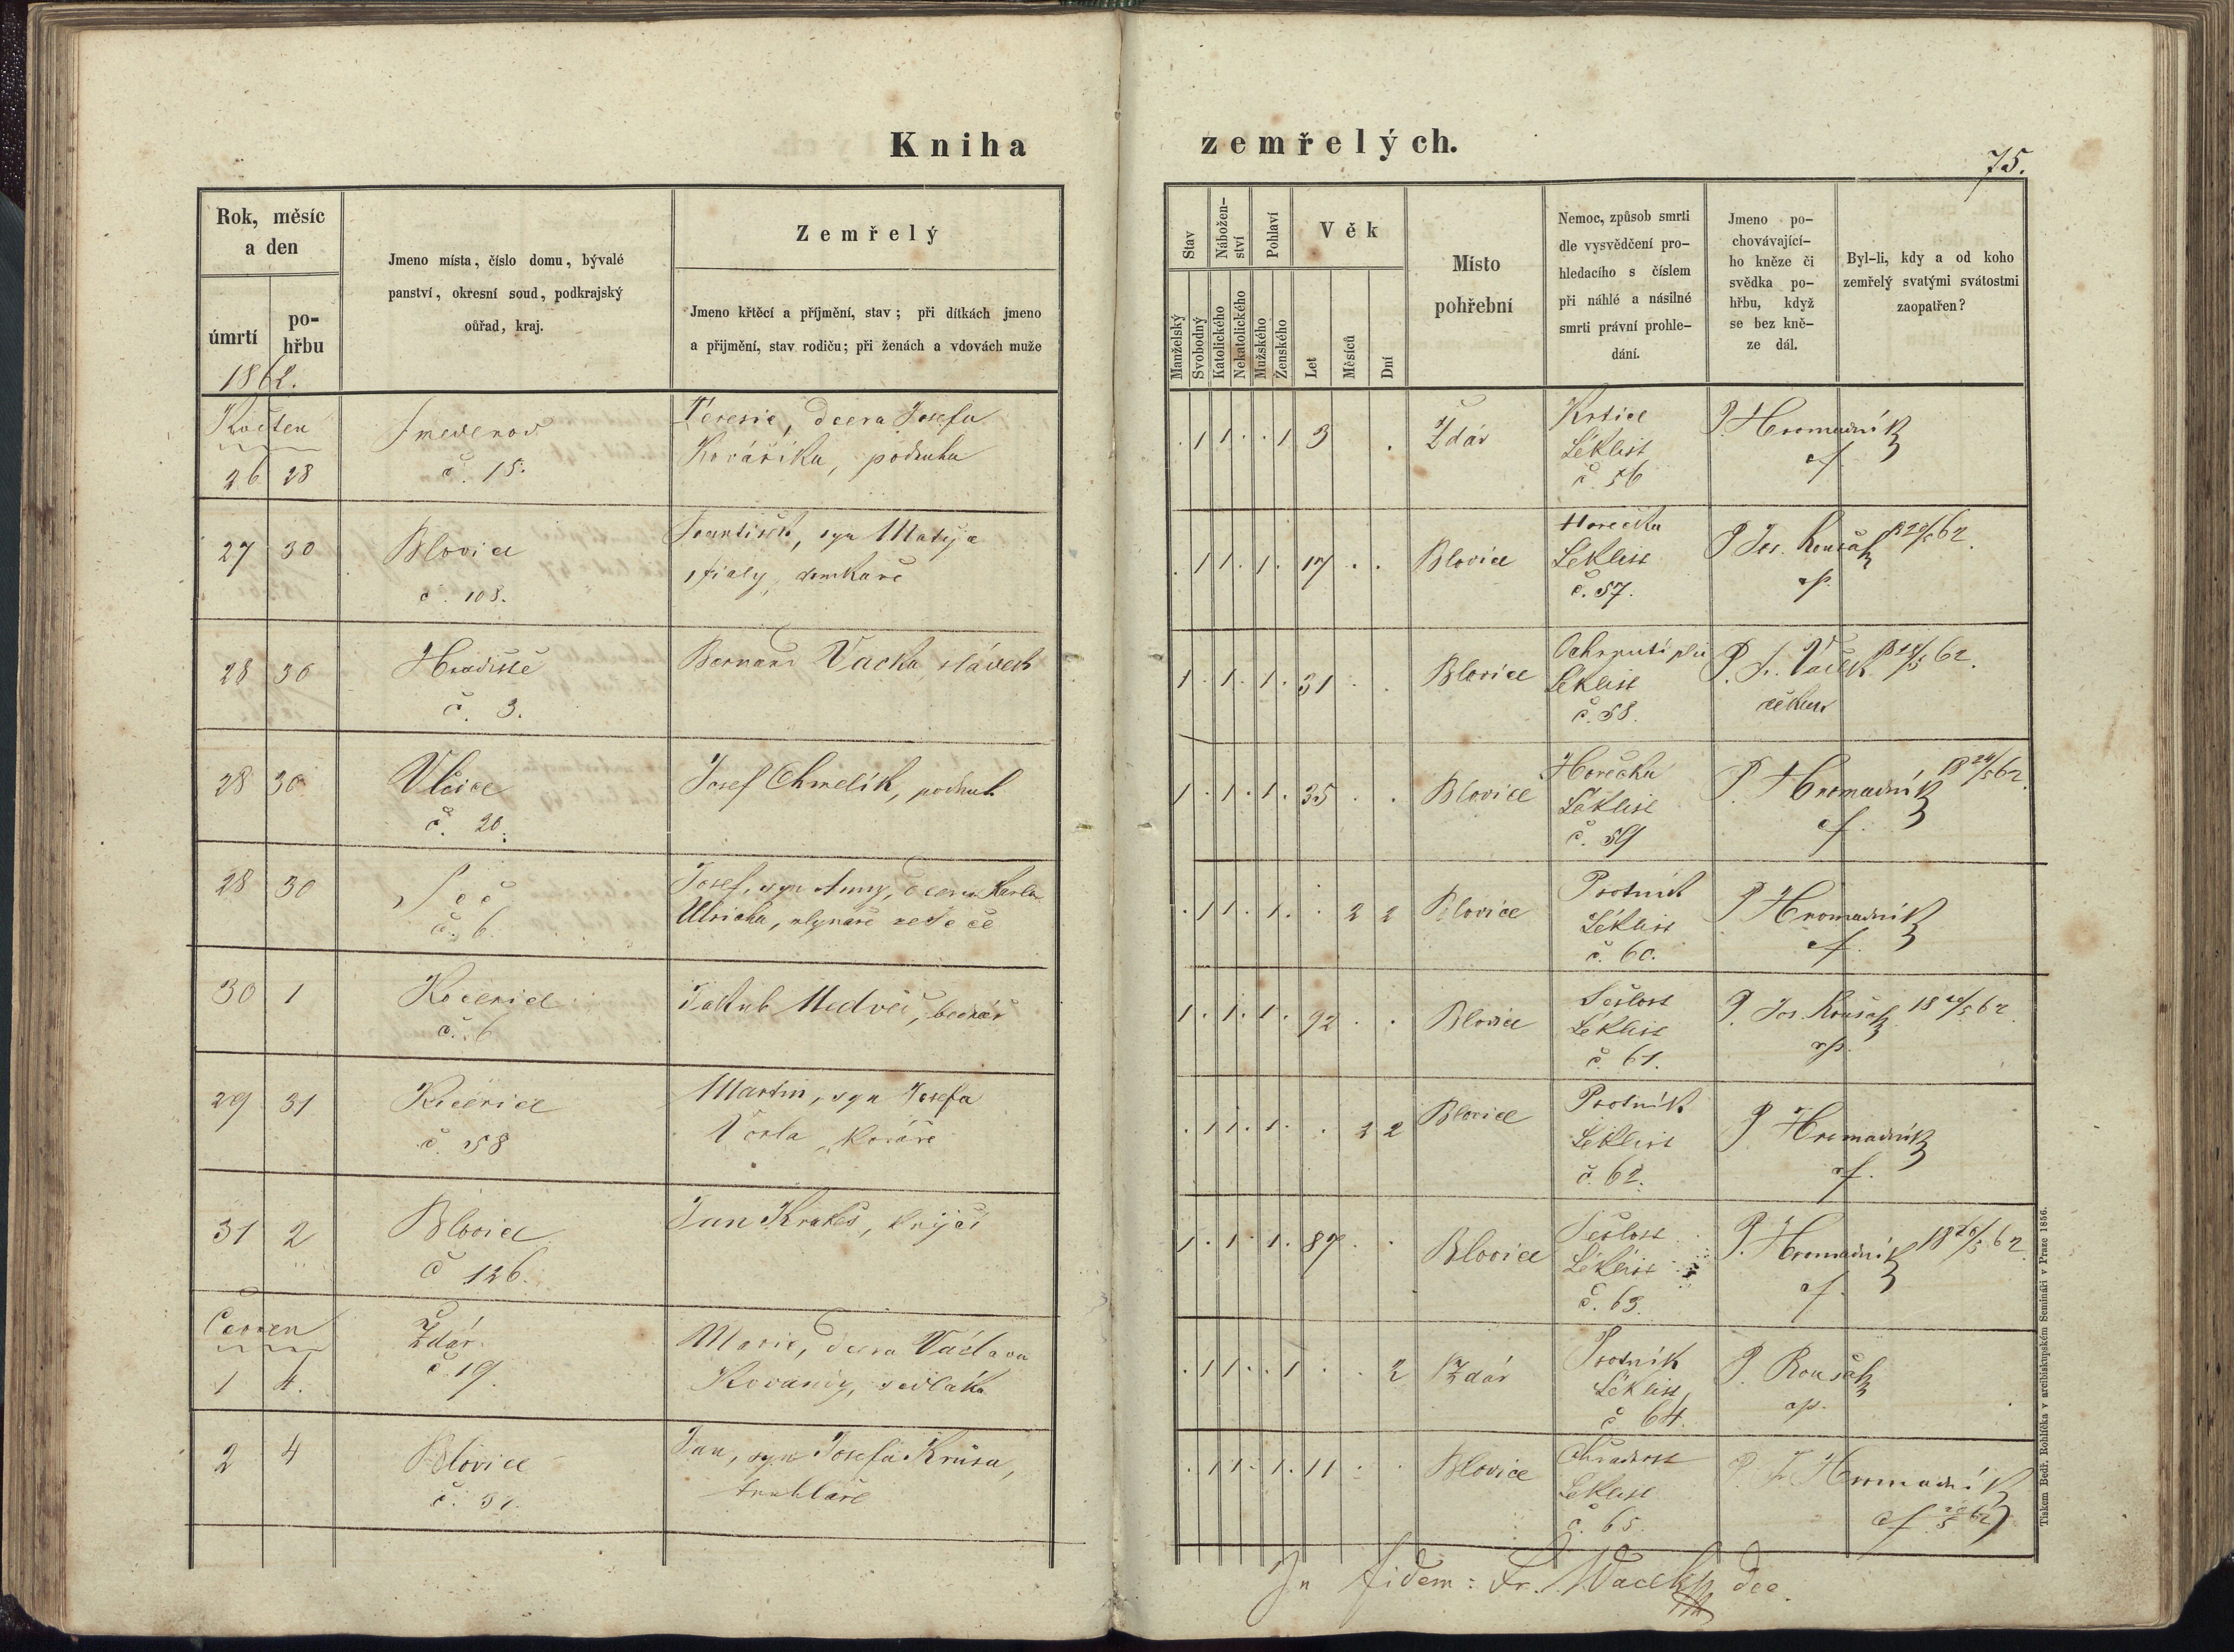 Kniha zemřelých.
75.
Rok, měsíc
a den
úmrtí
po-
hřbu
1862.
Jmeno místa, číslo domu, bývalé
panství, okresní soud, podkrajský
oůřad, kraj.
Zemřelý
Jmeno křtěcí a příjmění, stav; při dítkách jmeno
a přijmění, stav rodičů; při ženách a vdovách muže
Stav
Manželský
Svobodný
Nábožen-
ství
Katolického
Nekatolického
Pohlaví
Mužského
Ženského
Věk
Let
Měsíců
Dní
Místo
pohřební
Nemoc, způsob smrti
dle vysvědčení pro-
hledacího s číslem
při náhlé a násilné
smrti právní prohle-
dání.
Jmeno po-
chovávající-
ho kněze či
svědka po-
hřbu, když
se bez kně-
ze dál.
Byl-li, kdy a od koho
zemřelý svatými svátostmi
zaopatřen?
Květen
26 28
Smederov
č. 15.
Teresie, dcera Josefa
Kováříka, podruha
. 1 1 . . 1 3 .
Ždár
Krtice
Léklist
č. 56
P. Hromadník
cf.
27 30
Blovice
č. 108.
František, syn Matěje
Fialy, domkaře
. 1 1 . 1 . 17 . .
Blovice
Horečka
Léklist
č. 57.
P. Jos. Roušak
cp.
28 30
Hradiště
č. 3.
Bernard Vacka, sládek
1 . 1 . 1 . 31 . .
Blovice
Ochrnutí plic
Léklist
č. 58.
P. Fr. Vaček
děkan
28 30
Vlčice
č. 20.
Josef Chmelík, podruh
1 . 1 . 1 . 35 . .
Blovice
Horečka
Léklist
č. 59
P. Hromadník 18 24/5 62
cf.
28 30
Seč
č. 6.
Josef, syn Anny, dcera Karla
Ulricha, mlynáře ze Seče
. 1 1 . 1 . . 2 2
Blovice
Psotník
Léklist
č. 60.
P. Hromadník
cf.
30 1
Kocenice
č. 6
Jakub Medvěd, bednář
1 . 1 . 1 . 92 . .
Blovice
Sešlost
Léklist
č. 61.
P. Jos. Roušak
cp.
29 31
č. 58
Martin, syn Josefa
kováře
. 1 1 . 1 . . 2 2
Blovice
Psotník
Léklist
č. 62.
P. Hromadník
cf.
31 2
Blovice
č 126.
Jan Krakeš, krejčí
1 . 1 . 1 . 87 . .
Blovice
Sešlost
Léklist
č. 63.
P. Hromadník 18 26/5 62
cf.
Červen
1 4.
Ždár
č 19.
Marie, dcera Václava
Kovandy, sedláka
. 1 1 . . 1 . . 2
Ždár
Psotník
Léklist,
č 64.
P. Roušak
cp.
2 4
Blovice
č. 37.
Jan, syn Josefa Krůsa,
truhláře
. 1 1 . 1 . 11 . .
Blovice
Léklist
č. 65.
P. Fr. Hromadník
cf.
In fidem: Fr. Wacek dec.
Tiskem Bedř. Rohlíčka v arcibiskupském Semináři v Praze 1856.